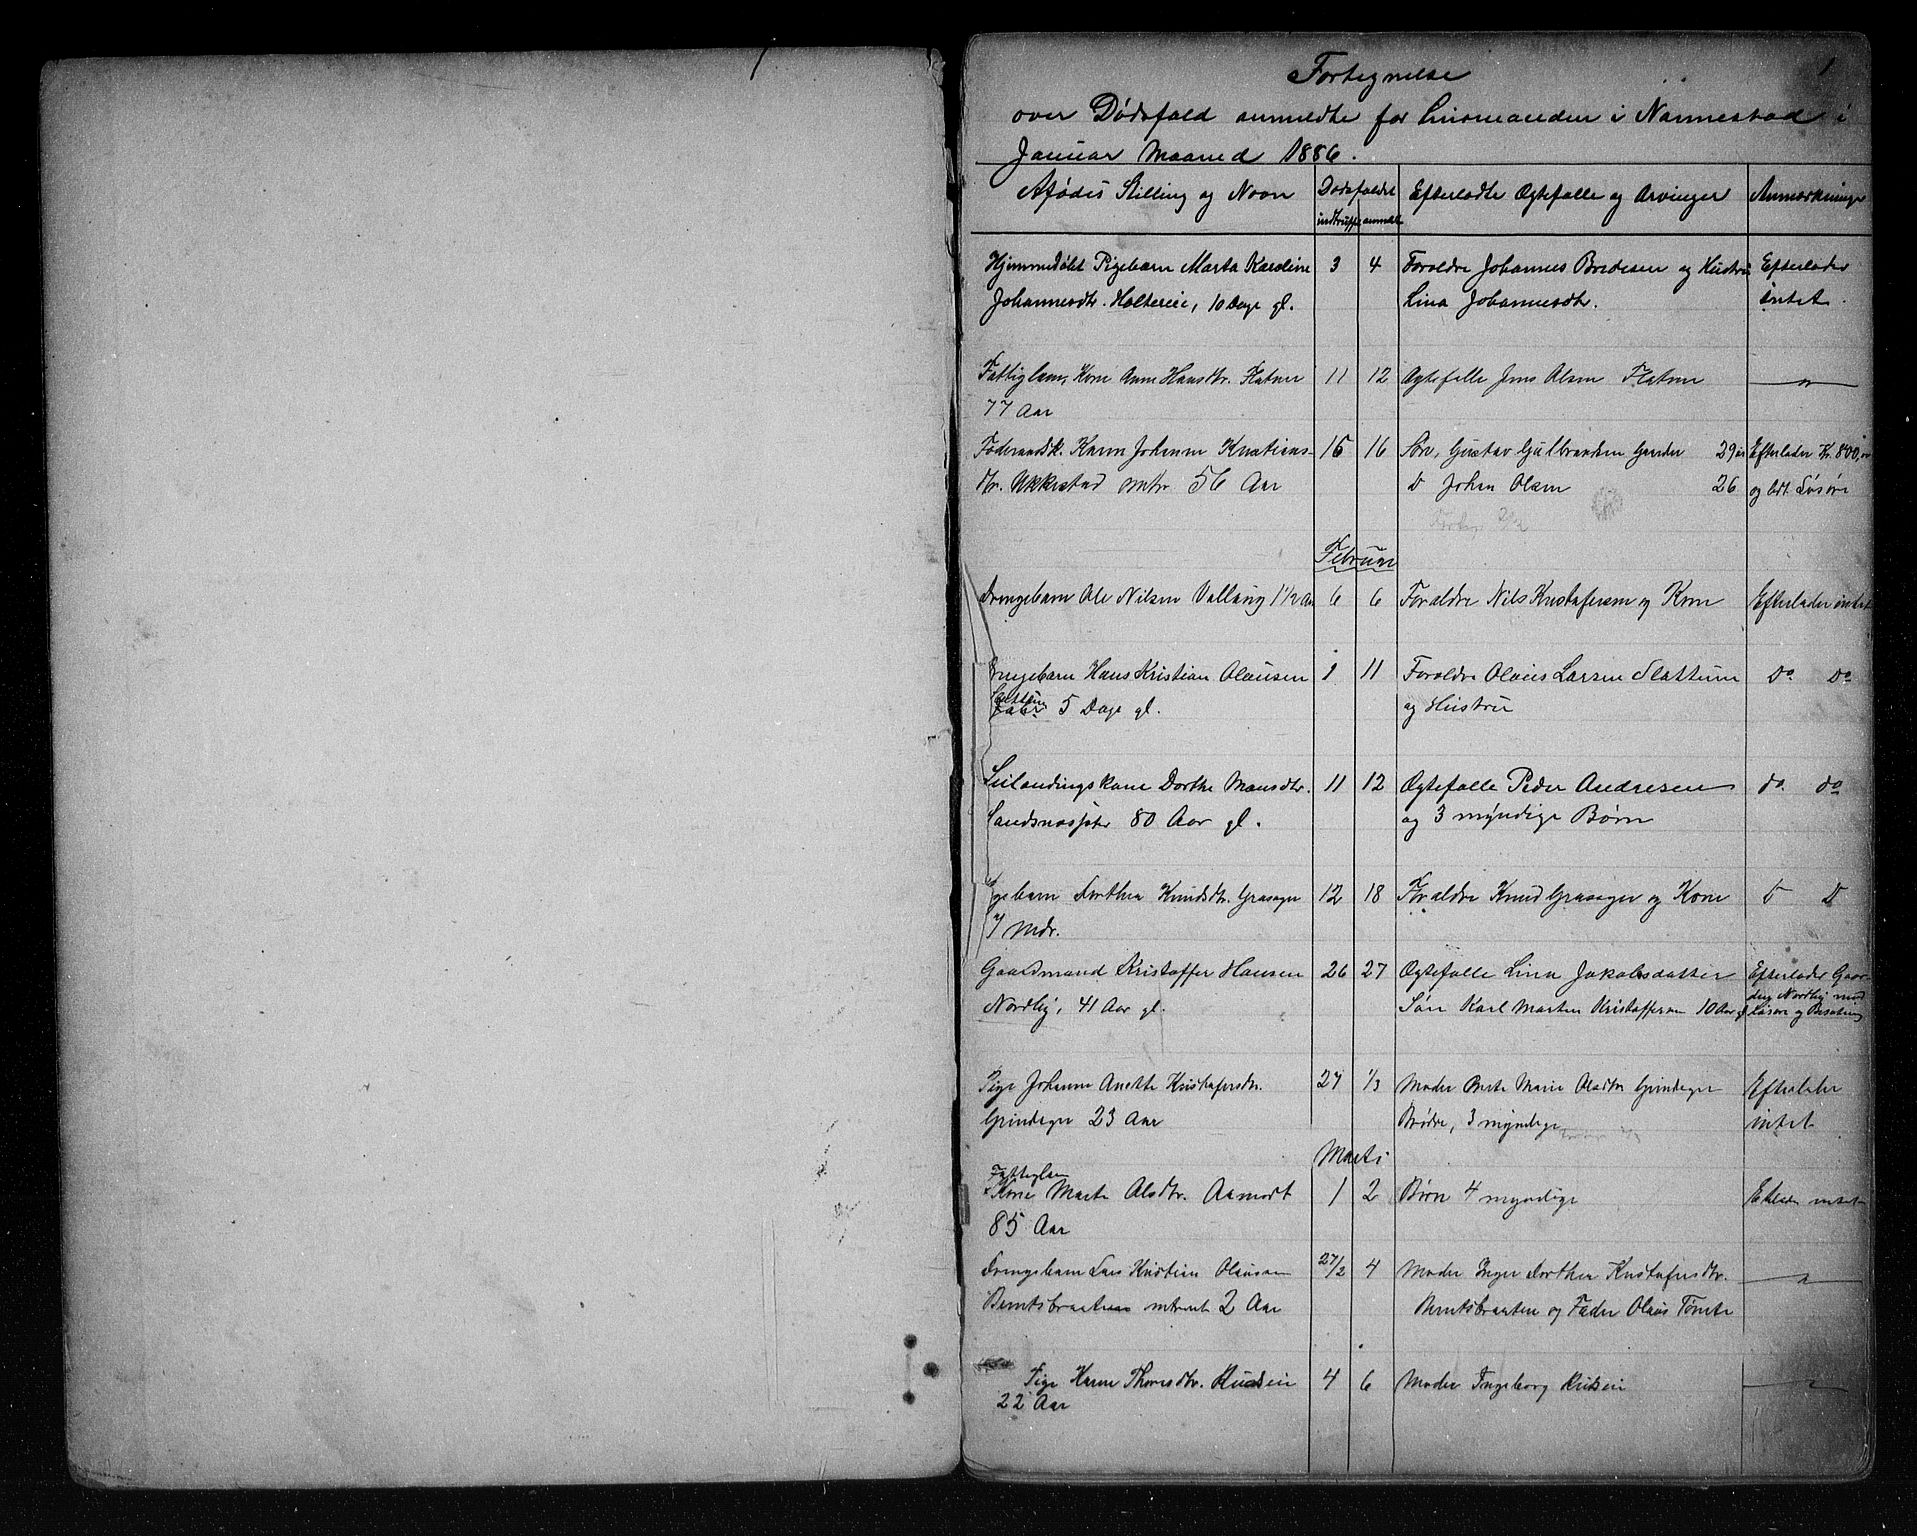 1
Fortegnelse
over Dødsfald anmeldte for Linsmanden i Nannestad i
Januar Maaned 1886.
Afødes Stilling og Navn Dødsfaldet Efterladte Ægtefælle og Arvinger Anmærkninger
indtruffet anmeldt
Hjemmedøbt Pigebarn Marta Karoline 3 4 Forældre Johannes Bredesen og Hustru Efterlader
Johannesdtr. Holtereie, 10 Dage gl. Lina Johannesdtr. intet.
Fattiglem, Kone Anne Hansdtr. Flatner 11 12 Ægtefælle Jens Olsen Flatner — " —
77 Aar
Føderaadsk. Karen Johanne Kristians- 15 16 Søn, Gustav Gulbrandsen Gander 29 aar Efterlader Kr. 800,
dtr. Ukkestad omtr. 56 Aar D Johan Olsen 26 og lidt Løsøre
Februar
Drengebarn Ole Nilsen Vallang 1 1/2 Aar 6 6 Forældre Nils Kristofersen og Kone Efterlader intet
Drengebarn Hans Kristian Olausen 1 11 Forældre Olaus Larsen Slattum do do
Slattum 5 Dage gl. og Hustru
Dorthe Hansdtr. 11 12 Ægtefælle Peder Andresen do do
80 Aar gl. og 3 myndige Børn
Pigebarn Dorthea Knudsdtr. Grasager 12 18 Forældre Knud Grasager og Kone D D
7 Mdr.
Gaardmand Kristoffer Hansen 26 27 Ægtefælle Lina Jakobsdatter Efterlader Gaar-
Nordbig, 41 Aar gl. Søn Karl Marten Kristoffersen 10 Aar gl. den Nordbig med
Løsøre og Besætning
Pige Johanne Anette Kristofersdtr. 27 1/3 Moder Berte Marie Olsdtr Grindager Efterlader
Grindager 23 Aar Brødre, 3 myndige intet
Marts
Fattiglem
Kone Marte Olsdtr. Aamodt 1 2 Børn 4 myndige Efterlader intet
85 Aar
Drengebarn Lars Kristian Olausen 27/2 4 Moder Inger Dorthea Kristofersdtr. — " —
Berntsbraaten omtrent 2 Aar Berntsbraaten og Fader Olaus Tomte
Pige Karen Thoresdtr. Rudseie 4 6 Moder Ingeborg Rudseie — " —
22 Aar